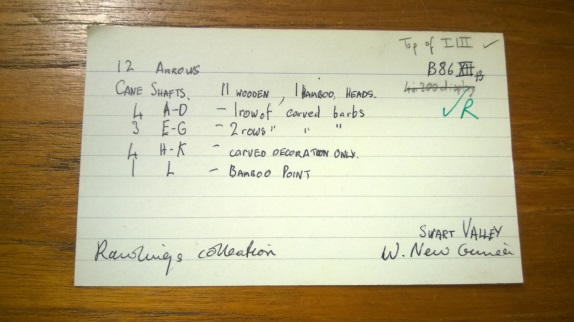 Top of III ✓
12 Arrows B86 XII
Cane Shafts. 11 wooden, 1 Bamboo, heads.
4 A-D - 1 row of carved barbs ✓R
3 E-G - 2 rows " " "
4 H-K - carved decoration only.
1 L - Bamboo Point
Swart Valley
Rawlings collection W. New Guinea